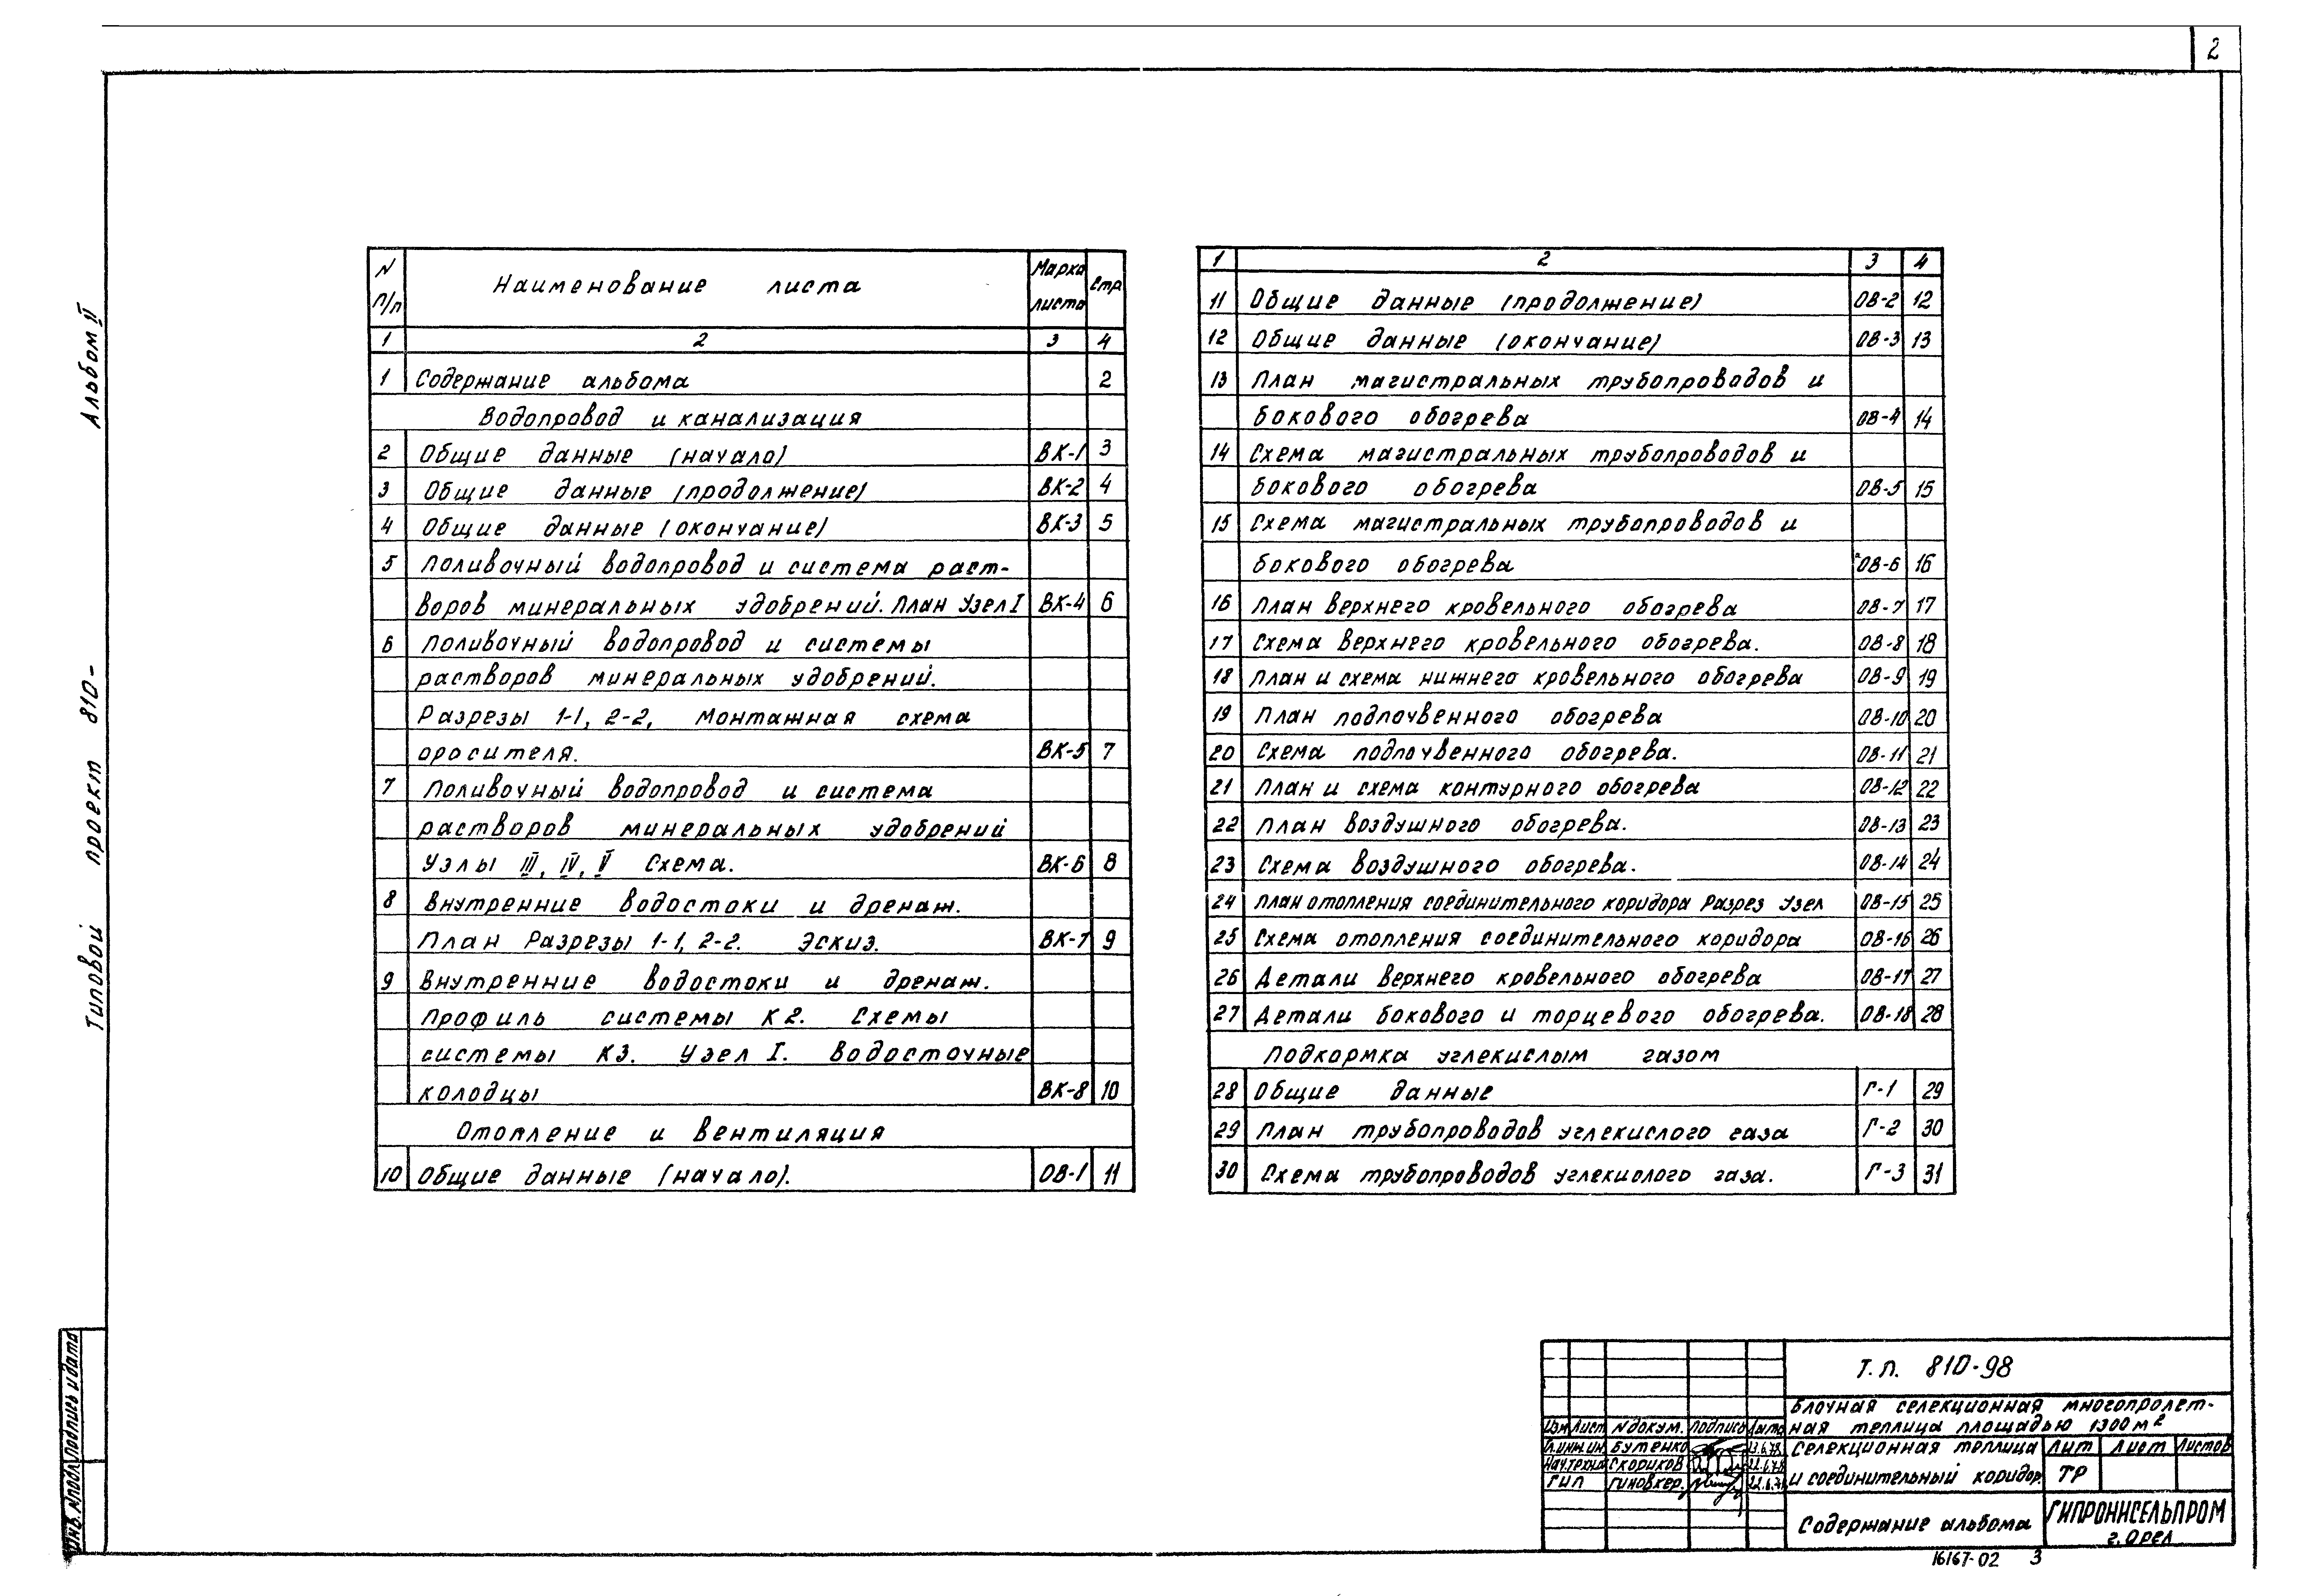 2
Альбом II
Типовой проект 810-
Инв. N подл. Подпись и дата
N п/п Наименование листа Марка листа Стр
1 2 3 4
1 Содержание альбома 2
Водопровод и канализация
2 Общие данные (начало) ВК-1 3
3 Общие данные (продолжение) ВК-2 4
4 Общие данные (окончание) ВК-3 5
5 Поливочный водопровод и система раст-
воров минеральных удобрений. План Узел I ВК-4 6
6 Поливочный водопровод и системы
растворов минеральных удобрений.
Разрезы 1-1, 2-2, Монтажная схема
оросителя. ВК-5 7
7 Поливочный водопровод и система
растворов минеральных удобрений
Узлы III, IV, V Схема. ВК-6 8
8 Внутренние водостоки и дренаж.
План Разрезы 1-1, 2-2. Эскиз. ВК-7 9
9 Внутренние водостоки и дренаж.
Профиль системы К2. Схемы
системы К3. Узел I. Водосточные
колодцы ВК-8 10
Отопление и вентиляция
10 Общие данные (начало). ОВ-1 11
1 2 3 4
11 Общие данные (продолжение) ОВ-2 12
12 Общие данные (окончание) ОВ-3 13
13 План магистральных трубопроводов и
бокового обогрева ОВ-4 14
14 Схема магистральных трубопроводов и
бокового обогрева ОВ-5 15
15 Схема магистральных трубопроводов и
бокового обогрева ОВ-6 16
16 План верхнего кровельного обогрева ОВ-7 17
17 Схема верхнего кровельного обогрева. ОВ-8 18
18 План и схема нижнего кровельного обогрева ОВ-9 19
19 План подпочвенного обогрева ОВ-10 20
20 Схема подпочвенного обогрева. ОВ-11 21
21 План и схема контурного обогрева ОВ-12 22
22 План воздушного обогрева. ОВ-13 23
23 Схема воздушного обогрева. ОВ-14 24
24 План отопления соединительного коридора Разрез Узел ОВ-15 25
25 Схема отопления соединительного коридора ОВ-16 26
26 Детали верхнего кровельного обогрева ОВ-17 27
27 Детали бокового и торцевого обогрева. ОВ-18 28
Подкормка углекислым газом
28 Общие данные Г-1 29
29 План трубопроводов углекислого газа Г-2 30
30 Схема трубопроводов углекислого газа. Г-3 31
Т.П. 810-98
Блочная селекционная многопролет-
ная теплица площадью 1300 м2
Изм Лист N докум. Подпись Дата
Гл.инж.ин. Бутенко
Нач.техна Скориков
ГИП Гиновкер.
Селекционная теплица
и соединительный коридор.
Лит Лист Листов
ТР
Содержание альбома
ГИПРОНИСЕЛЬПРОМ
г. Орел
16167-02 3